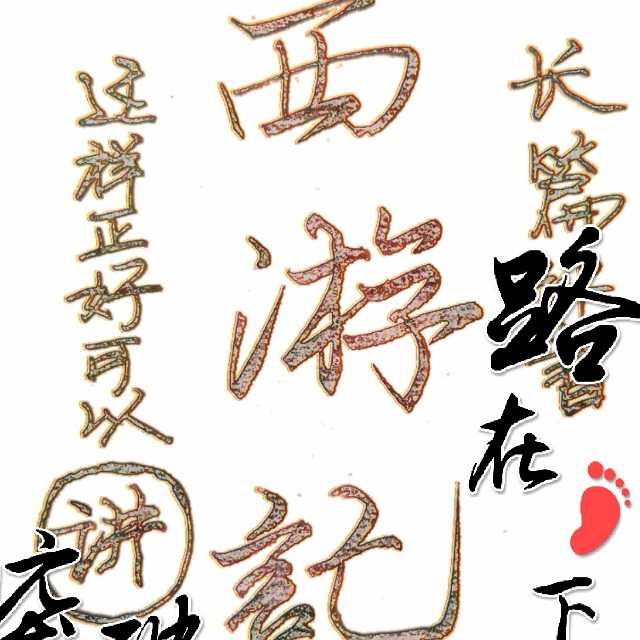 西游記
长篇
路在
下
这样正好可以
讲